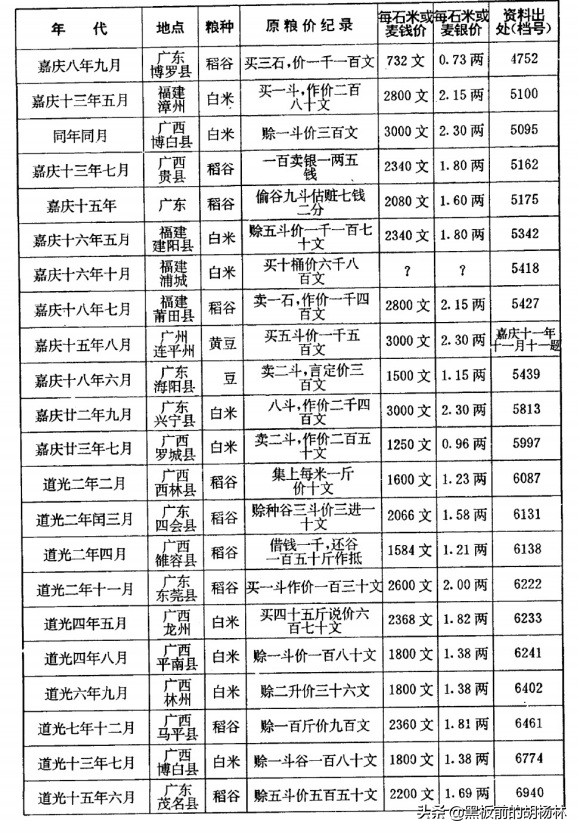 年代 地点 粮种 原粮价纪录 每石米或麦钱价 每石米或麦银价 资料出处(档号)
嘉庆八年九月 广东博罗县 稻谷 买三石，价一千一百文 732文 0.73两 4752
嘉庆十三年五月 福建漳州 白米 买一斗，作价二百八十文 2800文 2.15两 5100
同年同月 广西博白县 白米 赊一斗价三百文 3000文 2.30两 5095
嘉庆十三年七月 广西贵县 稻谷 一百卖银一两五钱 2340文 1.80两 5162
嘉庆十五年 广东 稻谷 偷谷九斗估赃七钱二分 2080文 1.60两 5175
嘉庆十六年五月 福建建阳县 白米 赊五斗价一千一百七十文 2340文 1.80两 5342
嘉庆十六年十月 福建浦城 白米 买十桶价六千八百文 ? ? 5418
嘉庆十八年七月 福建莆田县 稻谷 卖一石，作价一千四百文 2800文 2.15两 5427
嘉庆十五年八月 广州连平州 黄豆 买五斗价一千五百文 3000文 2.30两 嘉庆十一年十一月十一题
嘉庆十八年六月 广东海阳县 豆 卖二斗，言定价三百文 1500文 1.15两 5439
嘉庆廿二年九月 广东兴宁县 白米 八斗，作价二千四百文 3000文 2.30两 5813
嘉庆廿三年七月 广西罗城县 白米 卖二斗，作价二百五十文 1250文 0.96两 5997
道光二年二月 广西西林县 稻谷 集上每米一斤价十文 1600文 1.23两 6087
道光二年闰三月 广东四会县 稻谷 赊种谷三斗价三进一十文 2066文 1.58两 6131
道光二年四月 广西雒容县 稻谷 借钱一千，还谷一百五十斤作抵 1584文 1.21两 6138
道光二年十一月 广东东莞县 稻谷 买一斗作价一百三十文 2600文 2.00两 6222
道光四年五月 广西龙州 白米 买四十五斤说价六百七十文 2368文 1.82两 6233
道光四年八月 广西平南县 白米 赊一斗价一百八十文 1800文 1.38两 6241
道光六年九月 广西林州 白米 赊二升价三十六文 1800文 1.38两 6402
道光七年十二月 广西马平县 稻谷 赊一百斤价九百文 2360文 1.81两 6461
道光十三年七月 广西博白县 白米 赊一斗谷一百八十文 1800文 1.38两 6774
道光十五年六月 广东茂名县 稻谷 赊五斗价五百五十文 2200文 1.69两 6940
头条@黑板前的胡杨林